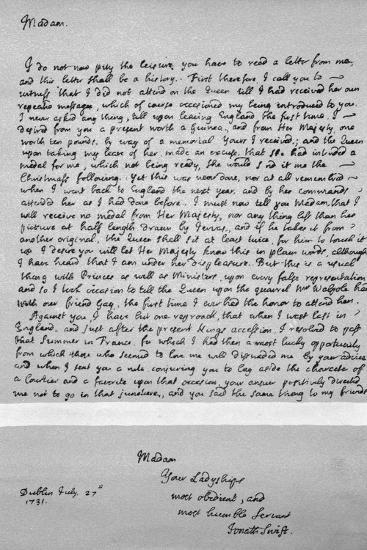 Madam.
I do not now pity the leisure you have to read a letter from me,
and this letter shall be a history. First therefore, I call you to
witness that I did not attend on the Queen till I had received her own
repeated messages, which of course occasioned my being introduced to you.
I never asked any thing, till upon leaving England the first time, I
desired from you a present worth a Guinea, and from Her Majesty one
worth ten pounds, by way of a memorial. Yours I received; and the Queen
upon taking my leave of her, made an excuse, that she had intended a
medal for me, which not being ready, she would send it me the
Christmas following. Yet this was never done, nor at all remembred
when I went back to England the next year, and by her commands
attended her as I had done before. I must now tell you Madam, that I
will receive no medal from Her Majesty, nor any thing less than her
picture at half length, drawn by Jervas, and if he takes it from
another original, the Queen shall sit at least twice for him to touch it
up. I desire you will let Her Majesty know this in plain words, although
I have heard that I am under her displeasure. But this is a usual
thing with Princes as well as Ministers, upon every false representation,
and so I took occasion to tell the Queen upon the quarrel Mr Walpole had
with our friend Gay, the first time I ever had the honor to attend her.
Against you I have but one reproach, that when I was last in
England, and just after the present Kings accession, I resolved to pass
that Summer in France, for which I had then a most lucky opportunity,
from which those who seemed to love me well disswaded me by your advice
and when I sent you a note, conjuring you to lay aside the character of
a Courtier and a favorite upon that occasion, your answer positively directed
me not to go in that juncture, and you said the same thing to my friends
Madam
Your Ladyships
most obedient, and
most humble Servant
Jonath: Swift.
Dublin July. 27th
1731.